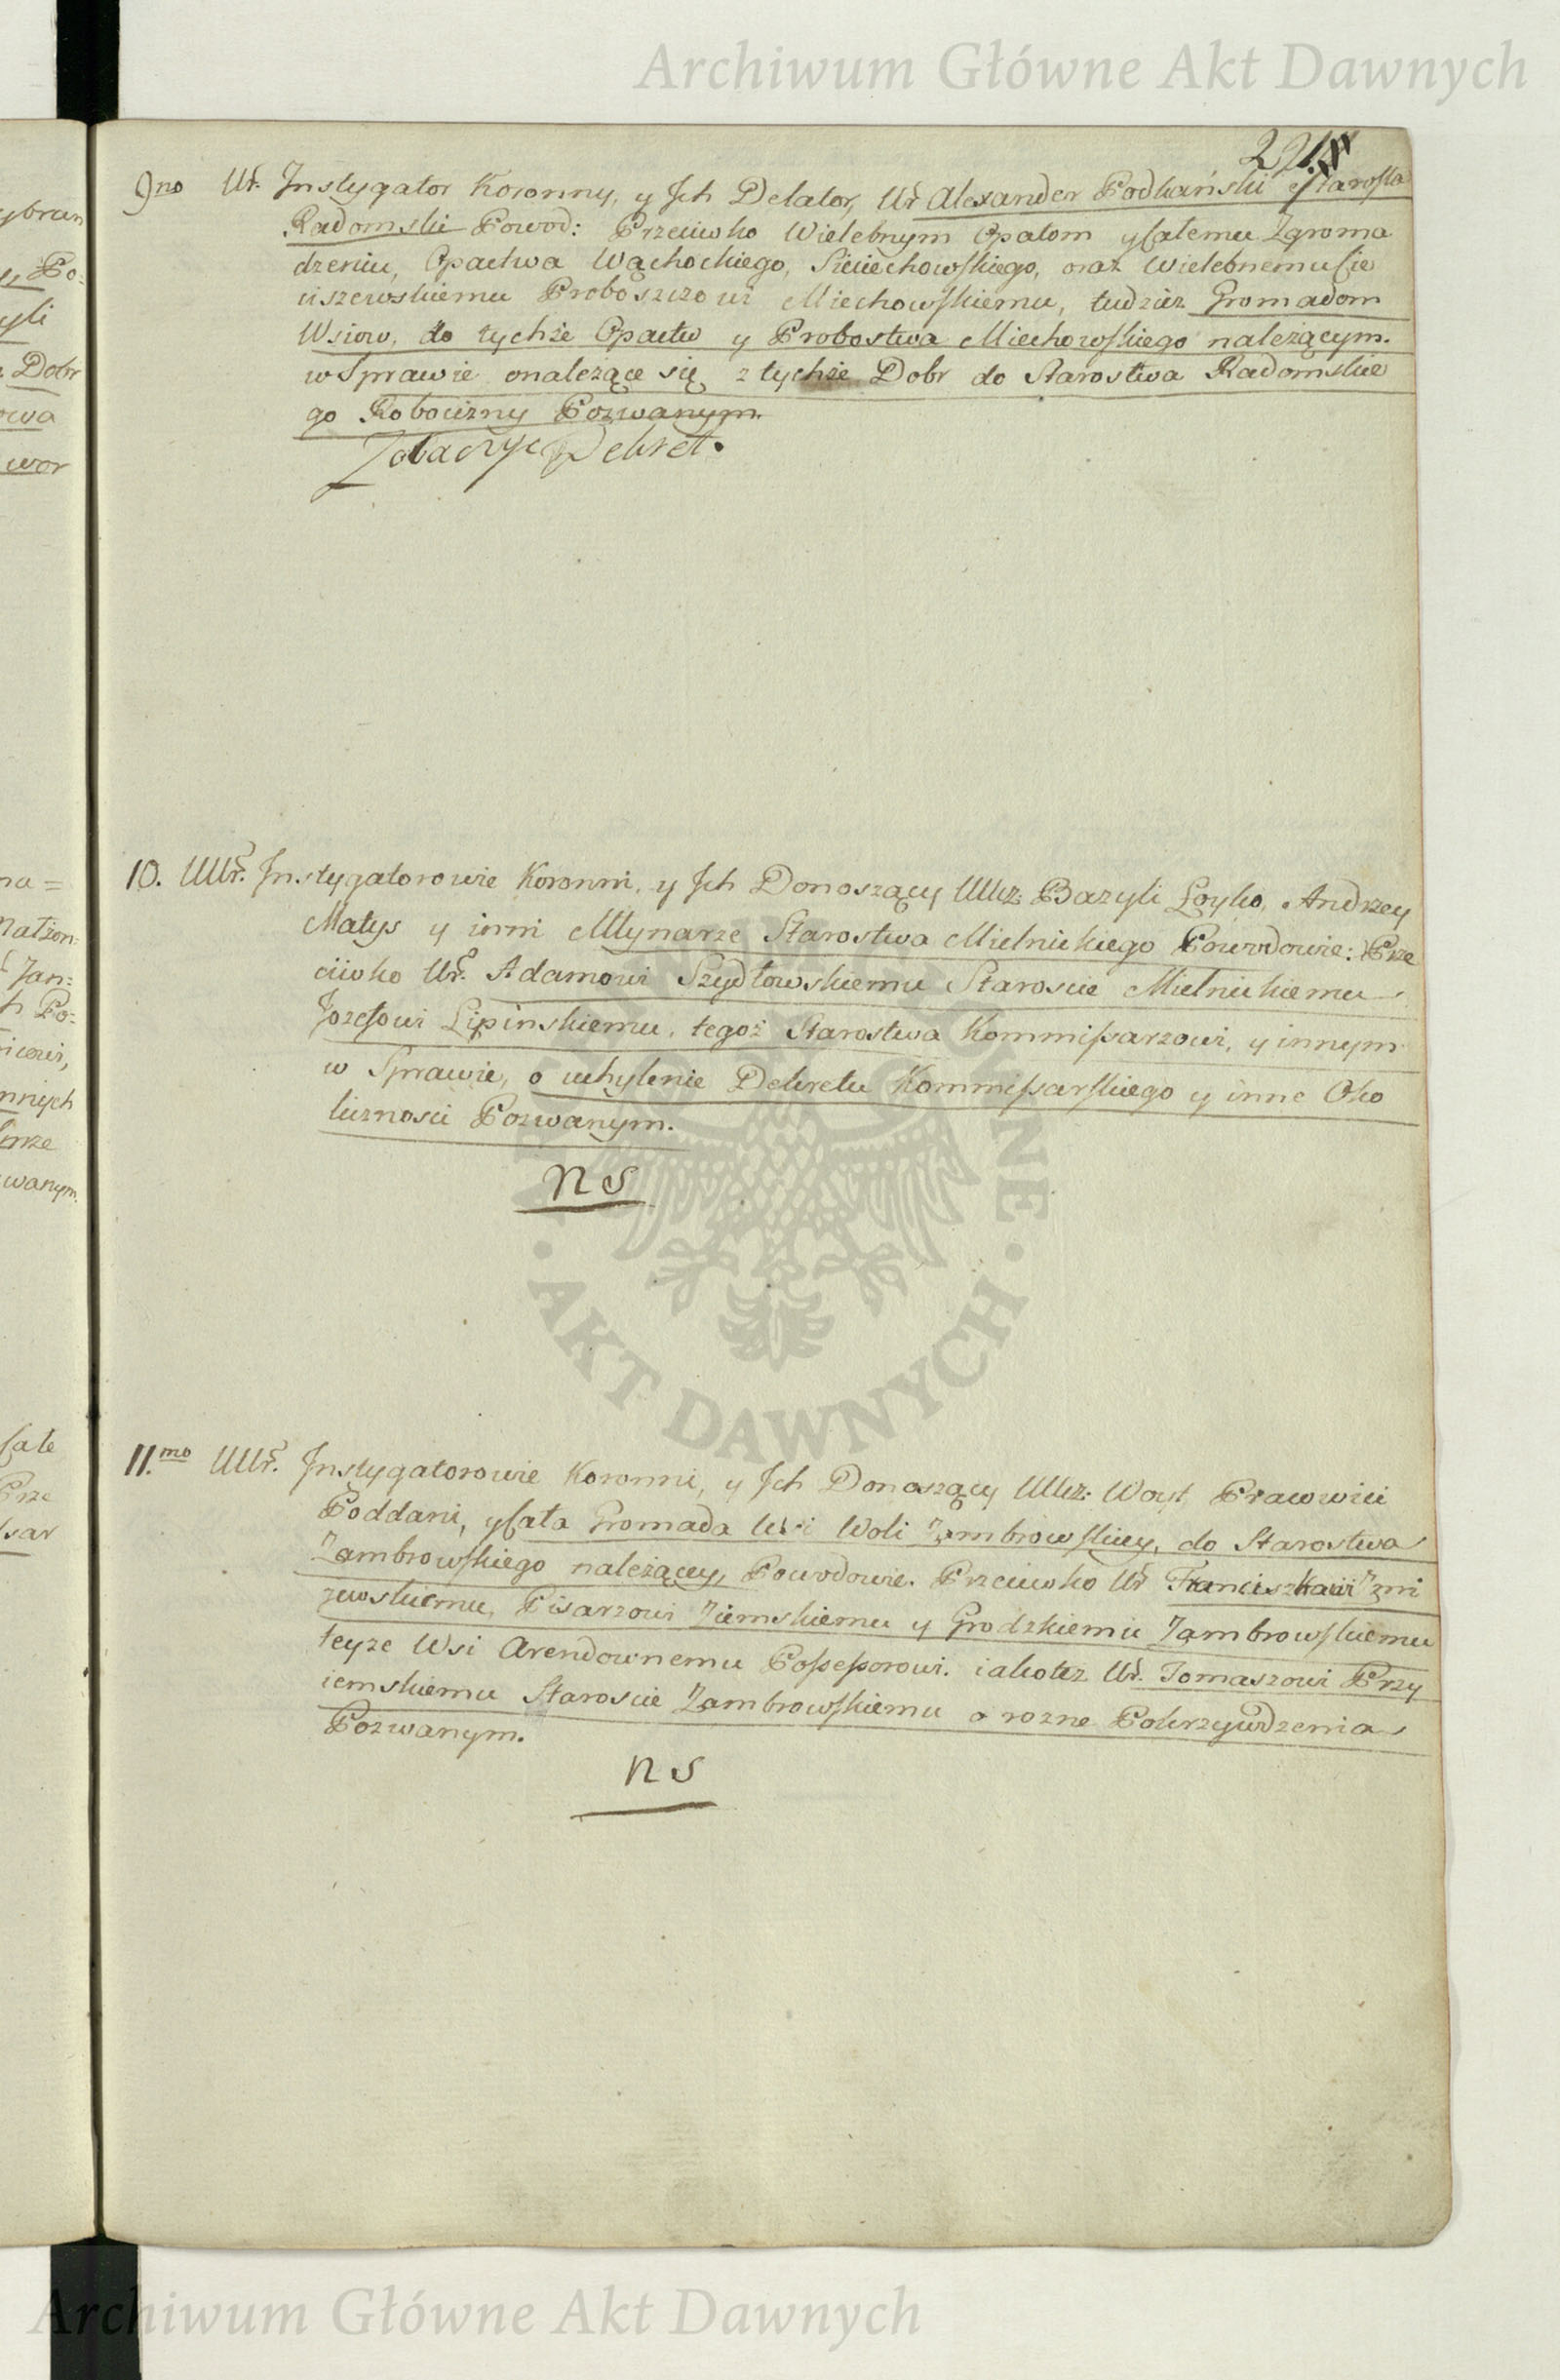 Archiwum Główne Akt Dawnych
9no Ur. Instygator Koronny, y Ich Delator, Ur Alexander Podkański Starosta
Radomski Powod: Przeciwko Wielebnym Opatom y całemu Zgroma
dzeniu, Opactwa Wąchockiego, Sieciechowskiego, oraz Wielebnemu Cie
ciszewskiemu Proboszczowi Miechowskiemu, tudziez Gromadom
Wsiow, do tychże Opactw y Probostwa Miechowskiego należącym.
w Sprawie o należące się z tychże Dobr do Starostwa Radomskie
go Robocizny Pozwanym.
Zobaczyc Dekret.
10. UUr. Instygatorowie Koronni, y Ich Donoszący UUcz: Bazyli Łoyko, Andrzey
Matys y inni Młynarze Starostwa Mielnickiego Powodowie: Prze
ciwko Ur. Adamowi Szydłowskiemu Staroscie Mielnickiemu
Jozefowi Lipinskiemu, tegoż Starostwa Kommissarzowi, y innym
w Sprawie, o uchylenie Dekretu Kommissarskiego y inne Oko
licznosci Pozwanym.
ns
11.mo UUr. Instygatorowie Koronni, y Ich Donoszący UUcz: Woyt, Pracowici
Poddani, y cała Gromada Wsi Woli Zambrowskiey, do Starostwa
Zambrowskiego należącey, Powodowie. Przeciwko Ur Franciszkowi Zmi
jewskiemu, Pisarzowi Ziemskiemu y Grodzkiemu Zambrowskiemu
teyze Wsi Arendownemu Possessorowi. iakotez Ur. Tomaszowi Przy
iemskiemu Staroscie Zambrowskiemu o rozne Pokrzywdzenia
Pozwanym.
ns
AKT DAWNYCH
Archiwum Główne Akt Dawnych